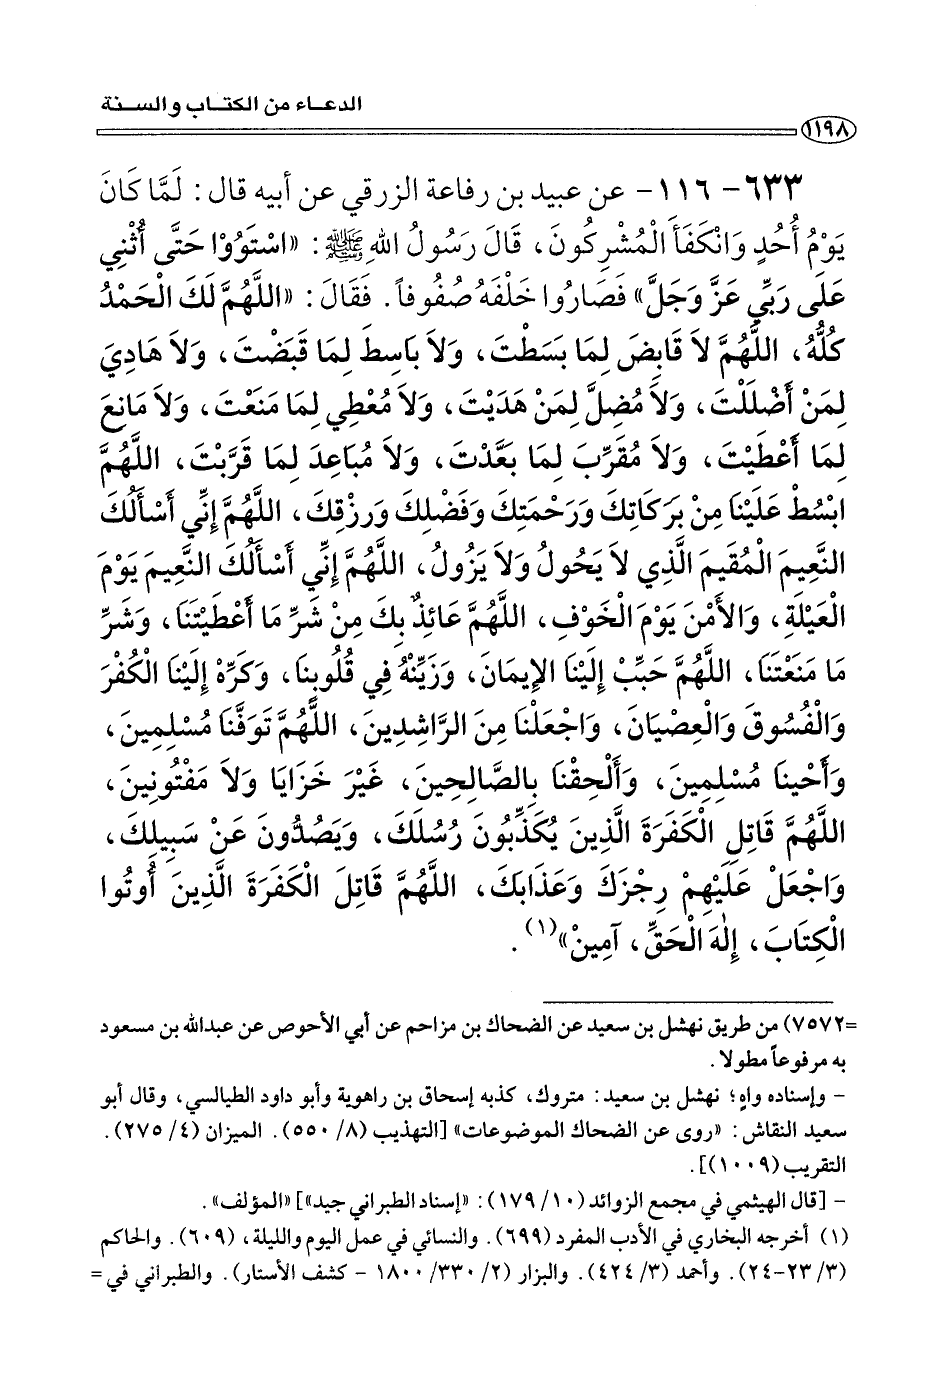 الدعاء من الكتاب والسنة
١١٩٨
٦٣٣- ١١٦- عن عبيد بن رفاعة الزرقي عن أبيه قال: لَمَّا كَانَ
يَوْمُ أُحُدٍ وَانْكَفَأَ الْمُشْرِكُونَ، قَالَ رَسُولُ اللهِ ﷺ: «اسْتَوُوْا حَتَّى أُثْنِي
عَلَى رَبِّي عَزَّ وَجَلَّ» فَصَارُوا خَلْفَهُ صُفُوفاً. فَقَالَ: «اللَّهُمَّ لَكَ الْحَمْدُ
كُلُّهُ، اللَّهُمَّ لاَ قَابِضَ لِمَا بَسَطْتَ، وَلاَ بَاسِطَ لِمَا قَبَضْتَ، وَلاَ هَادِيَ
لِمَنْ أَضْلَلْتَ، وَلاَ مُضِلَّ لِمَنْ هَدَيْتَ، وَلاَ مُعْطِي لِمَا مَنَعْتَ، وَلاَ مَانِعَ
لِمَا أَعْطَيْتَ، وَلاَ مُقَرِّبَ لِمَا بَعَّدْتَ، وَلاَ مُبَاعِدَ لِمَا قَرَّبْتَ، اللَّهُمَّ
ابْسُطْ عَلَيْنَا مِنْ بَرَكَاتِكَ وَرَحْمَتِكَ وَفَضْلِكَ وَرِزْقِكَ، اللَّهُمَّ إِنِّي أَسْأَلُكَ
النَّعِيمَ الْمُقِيمَ الَّذِي لاَ يَحُولُ وَلاَ يَزُولُ، اللَّهُمَّ إِنِّي أَسْأَلُكَ النَّعِيمَ يَوْمَ
الْعَيْلَةِ، وَالأَمْنَ يَوْمَ الْخَوْفِ، اللَّهُمَّ عَائِذٌ بِكَ مِنْ شَرِّ مَا أَعْطَيْتَنَا، وَشَرِّ
مَا مَنَعْتَنَا، اللَّهُمَّ حَبِّبْ إِلَيْنَا الإِيمَانَ، وَزَيِّنْهُ فِي قُلُوبِنَا، وَكَرِّهْ إِلَيْنَا الْكُفْرَ
وَالْفُسُوقَ وَالْعِصْيَانَ، وَاجْعَلْنَا مِنَ الرَّاشِدِينَ، اللَّهُمَّ تَوَفَّنَا مُسْلِمِينَ،
وَأَحْيِنَا مُسْلِمِينَ، وَأَلْحِقْنَا بِالصَّالِحِينَ، غَيْرَ خَزَايَا وَلاَ مَفْتُونِينَ،
اللَّهُمَّ قَاتِلِ الْكَفَرَةَ الَّذِينَ يُكَذِّبُونَ رُسُلَكَ، وَيَصُدُّونَ عَنْ سَبِيلِكَ،
وَاجْعَلْ عَلَيْهِمْ رِجْزَكَ وَعَذَابَكَ، اللَّهُمَّ قَاتِلَ الْكَفَرَةَ الَّذِينَ أُوتُوا
الْكِتَابَ، إِلٰهَ الْحَقِّ، آمِينْ»(١).
=٧٥٧٢) من طريق نهشل بن سعيد عن الضحاك بن مزاحم عن أبي الأحوص عن عبدالله بن مسعود
به مرفوعاً مطولا.
- وإسناده واهٍ؛ نهشل بن سعيد: متروك، كذبه إسحاق بن راهوية وأبو داود الطيالسي، وقال أبو
سعيد النقاش: «روى عن الضحاك الموضوعات» [التهذيب (٨/ ٥٥٠). الميزان (٤/ ٢٧٥).
التقريب (١٠٠٩)].
- [قال الهيثمي في مجمع الزوائد (١٠/ ١٧٩): «إسناد الطبراني جيد»] «المؤلف».
(١) أخرجه البخاري في الأدب المفرد (٦٩٩). والنسائي في عمل اليوم والليلة، (٦٠٩). والحاكم
(٣/ ٢٣-٢٤). وأحمد (٣/ ٤٢٤). والبزار (٢/ ٣٣٠/ ١٨٠٠ - كشف الأستار). والطبراني في=